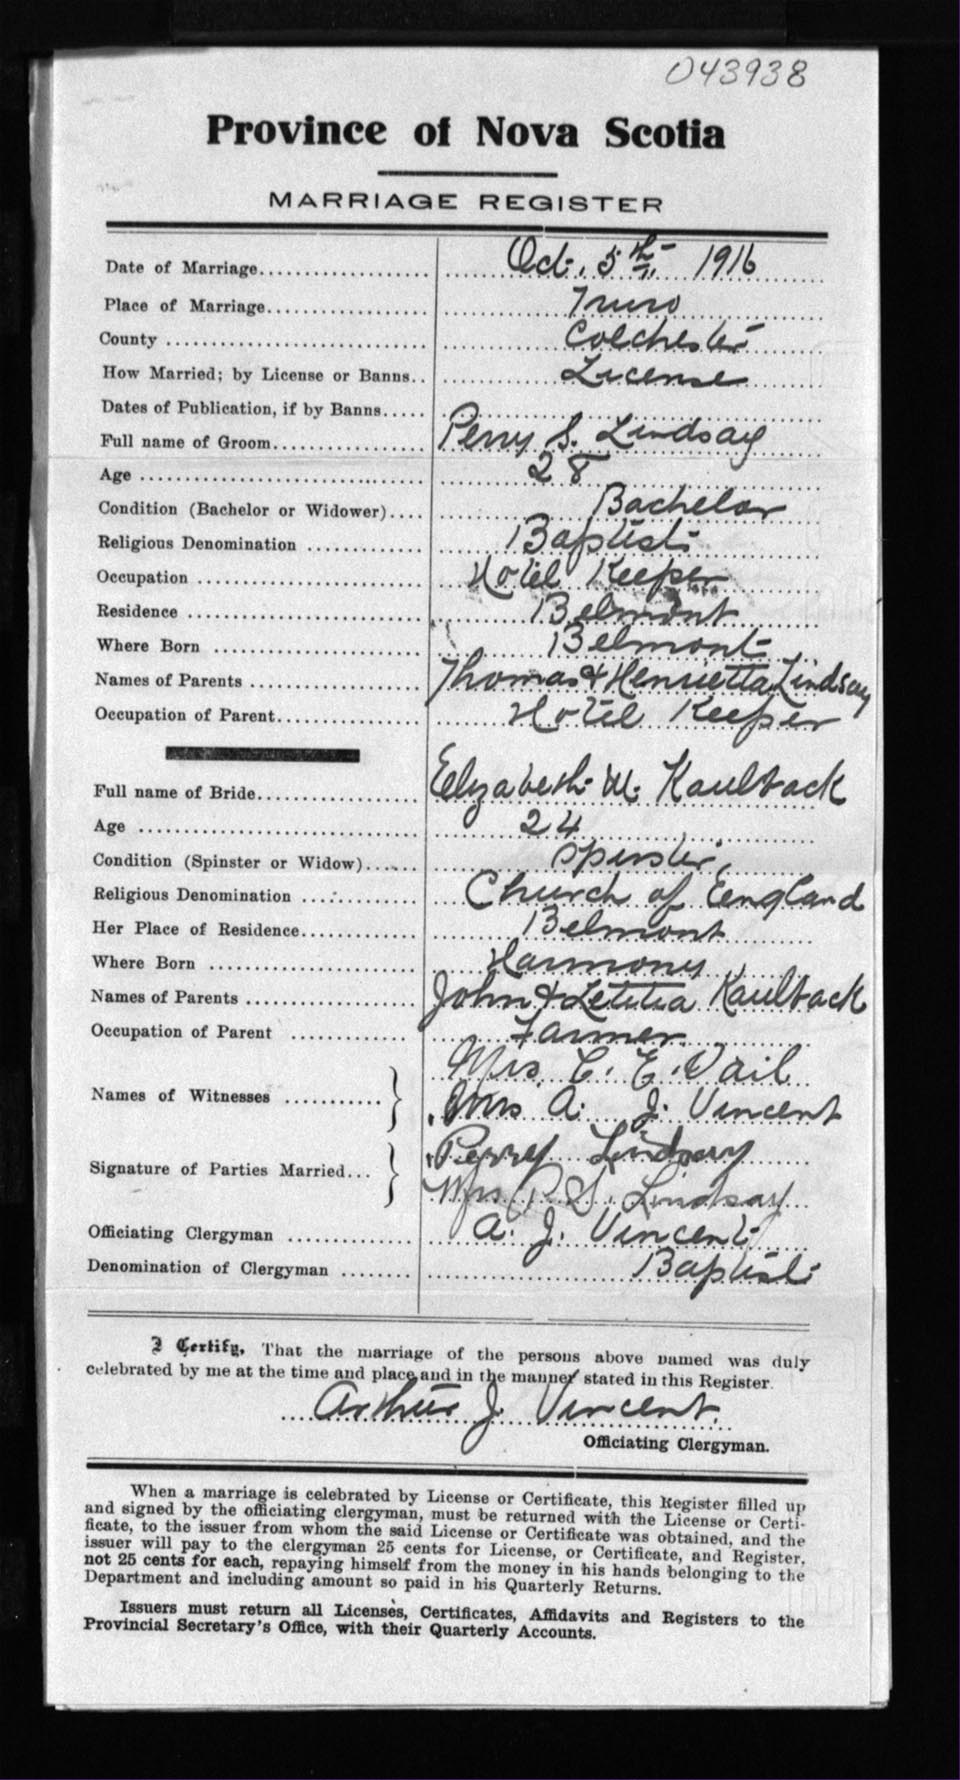 043938
Province of Nova Scotia
MARRIAGE REGISTER
Date of Marriage.................... Oct. 5th, 1916
Place of Marriage................... Truro
County .............................. Colchester
How Married; by License or Banns.. License
Dates of Publication, if by Banns.....
Full name of Groom.................. Perry S. Lindsay
Age .................................. 28
Condition (Bachelor or Widower).... Bachelor
Religious Denomination .............. Baptist
Occupation ........................... Hotel Keeper
Residence ............................ Belmont
Where Born .......................... Belmont
Names of Parents .................... Thomas & Henrietta Lindsay
Occupation of Parent................. Hotel Keeper
Full name of Bride................... Elizabeth M. Kaulback
Age .................................. 24
Condition (Spinster or Widow)....... Spinster
Religious Denomination .............. Church of England
Her Place of Residence.............. Belmont
Where Born .......................... Harmony
Names of Parents .................... John & Letitia Kaulback
Occupation of Parent ............... Farmer
Mrs. C. E. Vail
Names of Witnesses ............ } Mrs A. J. Vincent
Perry Lindsay
Signature of Parties Married... } Mrs P. S. Lindsay
Officiating Clergyman ............... A. J. Vincent
Denomination of Clergyman ........ Baptist
I Certify, That the marriage of the persons above named was duly
celebrated by me at the time and place and in the manner stated in this Register.
Arthur J. Vincent.
Officiating Clergyman.
When a marriage is celebrated by License or Certificate, this Register filled up
and signed by the officiating clergyman, must be returned with the License or Certi-
ficate, to the issuer from whom the said License or Certificate was obtained, and the
issuer will pay to the clergyman 25 cents for License, or Certificate, and Register,
not 25 cents for each, repaying himself from the money in his hands belonging to the
Department and including amount so paid in his Quarterly Returns.
Issuers must return all Licenses, Certificates, Affidavits and Registers to the
Provincial Secretary's Office, with their Quarterly Accounts.